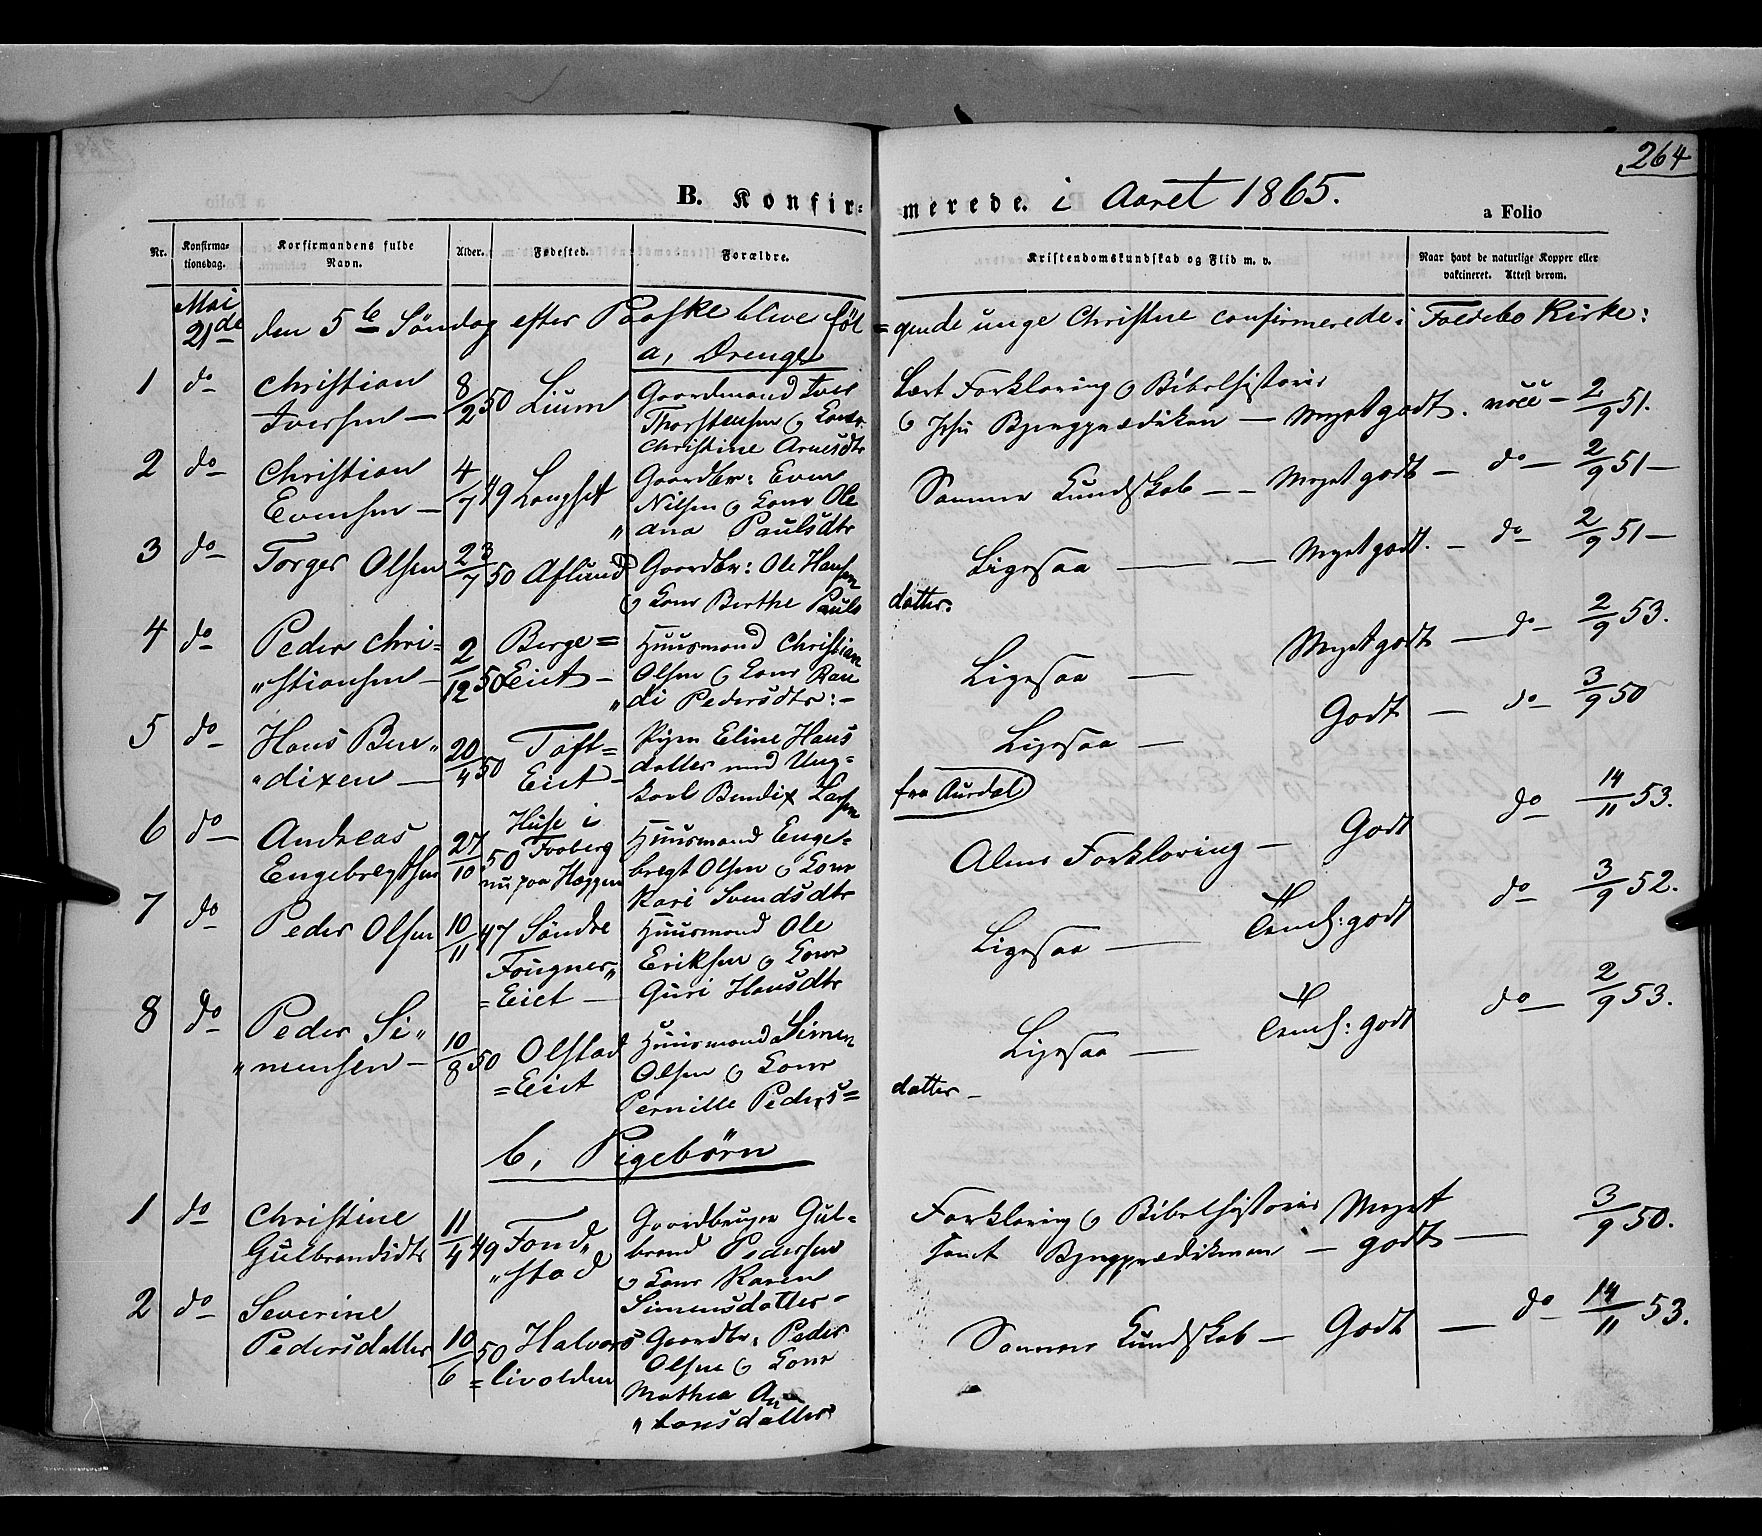 264
B. Konfirmerede. i Aaret 1865.
a Folio
Nr. Konfirmationsdag. Korfirmandens fulde Navn. Alder. Fødested. Forældre. Kristendomskundskab og Flid m. v. Naar havt de naturlige Kopper eller vaktineret. Attest derom.
Mai 21de den 5te Søndag efter Paaske bleve føl=gende unge Christne confirmerede i Foldebo Kirke:
a, Drenge
1 do Christian Iversen — 8/2 50 Lium Gaardmand Iver Thorstensen & Kone Christine Arnesdtr
Lært Forklaring & Bibelhistorie & Jesu Bjergprædiken — Meget godt. vacc — 2/9 51.
2 do Christian Evensen — 4/7 49 Longset Gaardbr: Even Nilsen & Kone Ole„ana Paulsdtr
Samme Kundskab — Meget godt — do — 2/9 51 —
3 do Torger Olsen 23/7 50 Aflund Gaardbr: Ole Hansen & Kone Berthe Pauls datter.
Ligesaa — Meget godt. — do — 2/9 51 —
4 do Peder Chri=„stiansen — 2/12 50 Berge=Eiet — Huusmand Christian Olsen & Kone Ran„di Pedersdtr: —
Ligesaa — Meget godt — do — 2/9 53.
5 do Hans Ben„„dixen — 20/4 50 Toft=Eiet — Pigen Eline Hans datter med Ung=karl Bendix Larsen fra Aurdal
Ligesaa — Godt — do — 3/9 50
6 do Andreas Engebregtsen 27/10 50 Huse i Froberg nu paa Haggen Huusmand Enge=bregt Olsen & Kone Kari Svendsdtr
Alene Forklaring — Godt do 14/11 53.
7 do Peder Olsen 10/11 47 Søndre Fougner„=Eiet — Huusmand Ole Eriksen & Kone Guri Hansdtr
Ligesaa — Temel: godt do 3/9 52.
8 do Peder Si„„mensen — 10/8 50 Olstad =Eiet Huusmand Simen Olsen & Kone Pernille Peders= datter —
Ligesaa — Temel: godt do — 2/9 53.
b, Pigebørn
1 do Christine Gulbrandsdtr 11/4 49 Fond„„stad Gaardbruger Gul=brand Pedersen & Kone Karen Simensdatter —
Forklaring & Bibelhistorie samt Bjergprædikenen — Meget godt — 3/9 50.
2 do Severine Pedersdatter 10/6 50 Halvors=livolden Gaardbr: Peder Olsen & Kone Mathea An„tonsdatter
Samme Kundskab — Godt — do — 14/11 53.